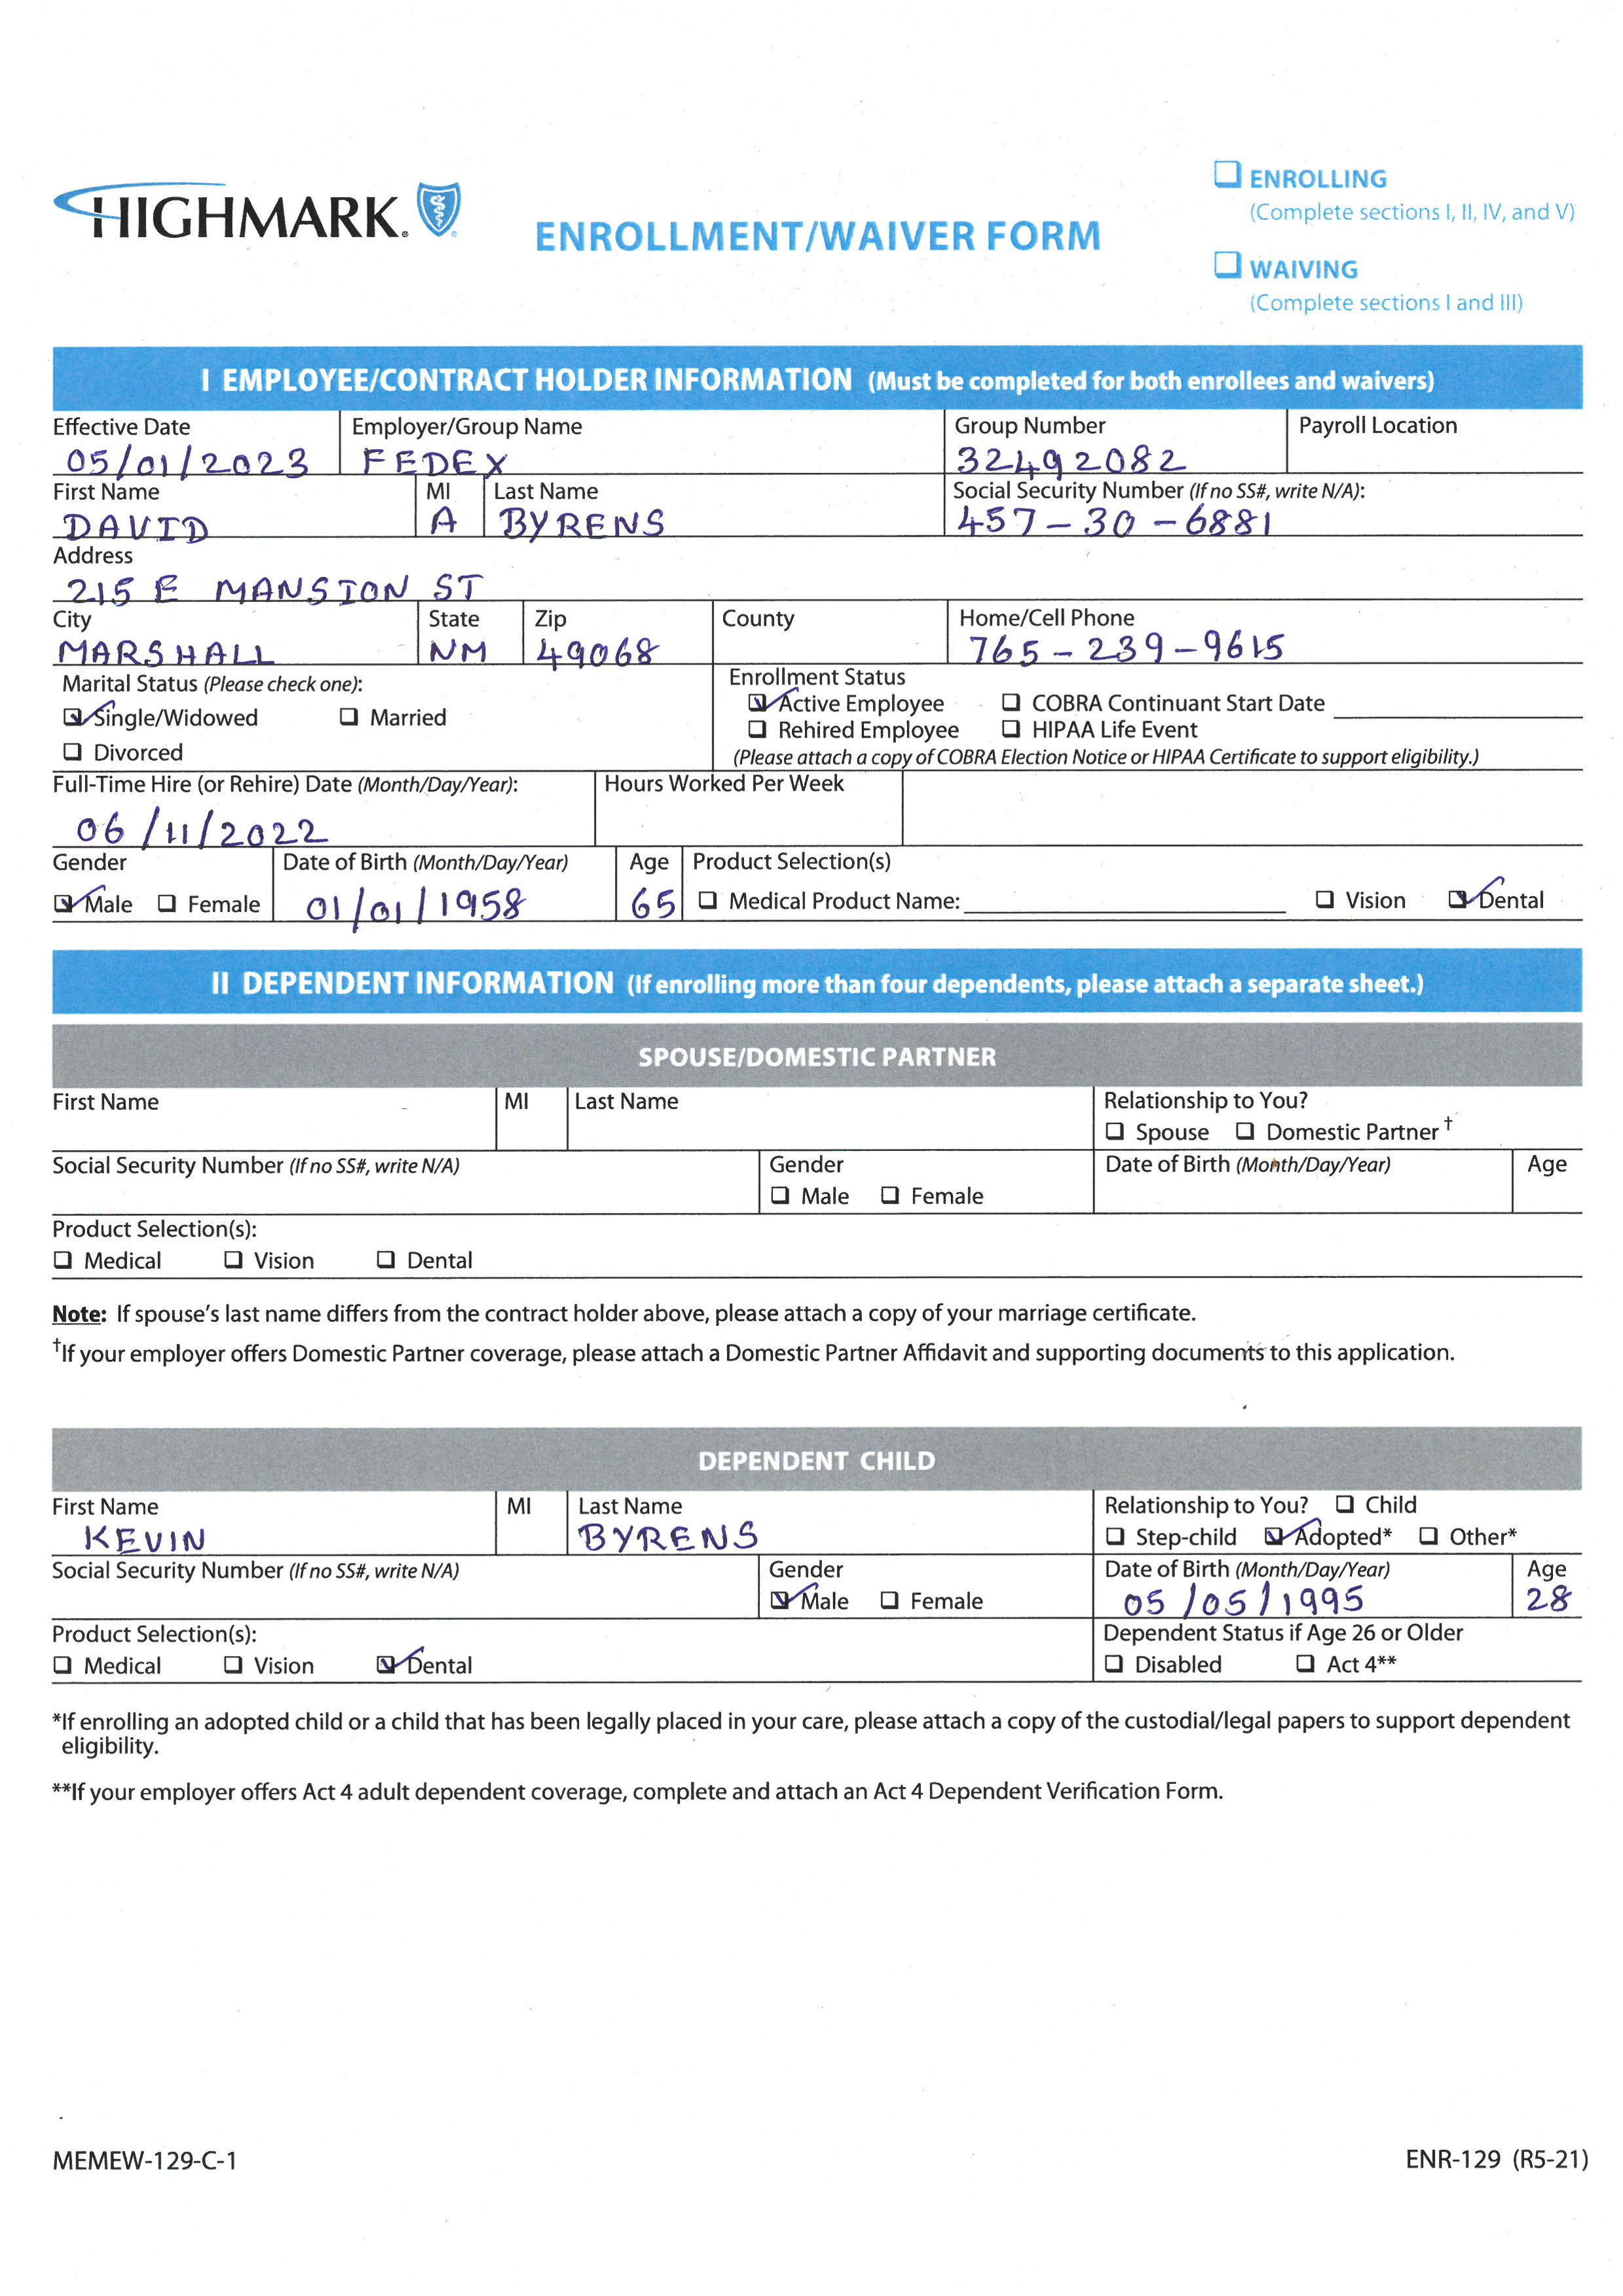 HIGHMARK.
ENROLLMENT/WAIVER FORM
☐ ENROLLING
(Complete sections I, II, IV, and V)
☐ WAIVING
(Complete sections I and III)
I EMPLOYEE/CONTRACT HOLDER INFORMATION (Must be completed for both enrollees and waivers)
Effective Date Employer/Group Name Group Number Payroll Location
05/01/2023 FEDEX 32492082
First Name MI Last Name Social Security Number (If no SS#, write N/A):
DAVID A BYRENS 457-30-6881
Address
215 E MANSION ST
City State Zip County Home/Cell Phone
MARSHALL NM 49068 765-239-9615
Marital Status (Please check one): Enrollment Status
☑ Single/Widowed ☐ Married ☑ Active Employee ☐ COBRA Continuant Start Date
☐ Divorced ☐ Rehired Employee ☐ HIPAA Life Event
(Please attach a copy of COBRA Election Notice or HIPAA Certificate to support eligibility.)
Full-Time Hire (or Rehire) Date (Month/Day/Year): Hours Worked Per Week
06/11/2022
Gender Date of Birth (Month/Day/Year) Age Product Selection(s)
☑ Male ☐ Female 01/01/1958 65 ☐ Medical Product Name: ☐ Vision ☑ Dental
II DEPENDENT INFORMATION (If enrolling more than four dependents, please attach a separate sheet.)
SPOUSE/DOMESTIC PARTNER
First Name MI Last Name Relationship to You?
☐ Spouse ☐ Domestic Partner†
Social Security Number (If no SS#, write N/A) Gender Date of Birth (Month/Day/Year) Age
☐ Male ☐ Female
Product Selection(s):
☐ Medical ☐ Vision ☐ Dental
Note: If spouse's last name differs from the contract holder above, please attach a copy of your marriage certificate.
†If your employer offers Domestic Partner coverage, please attach a Domestic Partner Affidavit and supporting documents to this application.
DEPENDENT CHILD
First Name MI Last Name Relationship to You? ☐ Child
KEVIN BYRENS ☐ Step-child ☑ Adopted* ☐ Other*
Social Security Number (If no SS#, write N/A) Gender Date of Birth (Month/Day/Year) Age
☑ Male ☐ Female 05/05/1995 28
Product Selection(s): Dependent Status if Age 26 or Older
☐ Medical ☐ Vision ☑ Dental ☐ Disabled ☐ Act 4**
*If enrolling an adopted child or a child that has been legally placed in your care, please attach a copy of the custodial/legal papers to support dependent
eligibility.
**If your employer offers Act 4 adult dependent coverage, complete and attach an Act 4 Dependent Verification Form.
MEMEW-129-C-1 ENR-129 (R5-21)